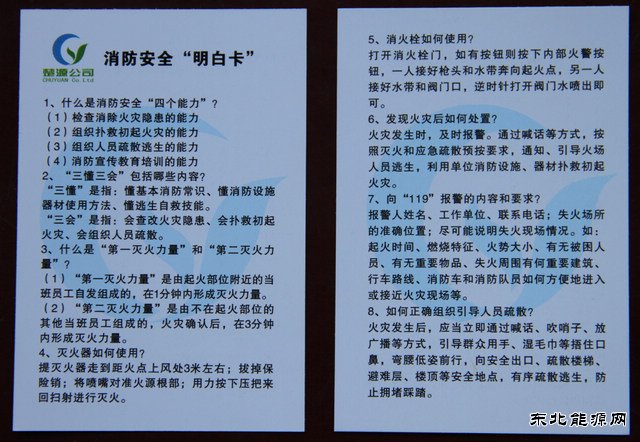 楚源公司
CHUYUAN Co.Ltd
消防安全“明白卡”
1、什么是消防安全“四个能力”?
(1)检查消除火灾隐患的能力
(2)组织扑救初起火灾的能力
(3)组织人员疏散逃生的能力
(4)消防宣传教育培训的能力
2、“三懂三会”包括哪些内容?
“三懂”是指:懂基本消防常识、懂消防设施
器材使用方法、懂逃生自救技能。
“三会”是指:会查改火灾隐患、会扑救初起
火灾、会组织人员疏散。
3、什么是“第一灭火力量”和“第二灭火力
量”?
(1)“第一灭火力量”是由起火部位附近的当
班员工自发组成的,在1分钟内形成灭火力量。
(2)“第二灭火力量”是由不在起火部位的
其他当班员工组成,火灾确认后,在3分钟
内形成灭火力量。
4、灭火器如何使用?
提灭火器走到距火点上风处3米左右;拔掉保
险销;将喷嘴对准火源根部;用力按下压把来
回扫射进行灭火。
5、消火栓如何使用?
打开消火栓门,如有按钮则按下内部火警按
钮,一人接好枪头和水带奔向起火点,另一人
接好水带和阀门口,逆时针打开阀门水喷出即
可。
6、发现火灾后如何处置?
火灾发生时,及时报警。通过喊话等方式,按
照灭火和应急疏散预按要求,通知、引导火场
人员逃生,利用单位消防设施、器材扑救初起
火灾。
7、向“119”报警的内容和要求?
报警人姓名、工作单位、联系电话;失火场所
的准确位置;尽可能说明失火现场情况。如:
起火时间、燃烧特征、火势大小、有无被困人
员、有无重要物品、失火周围有何重要建筑、
行车路线、消防车和消防队员如何方便地进入
或接近火灾现场等。
8、如何正确组织引导人员疏散?
火灾发生后,应当立即通过喊话、吹哨子、放
广播等方式,引导群众用手、湿毛巾等捂住口
鼻,弯腰低姿前行,向安全出口、疏散楼梯、
避难层、楼顶等安全地点,有序疏散逃生,防
止拥堵踩踏。
东北能源网